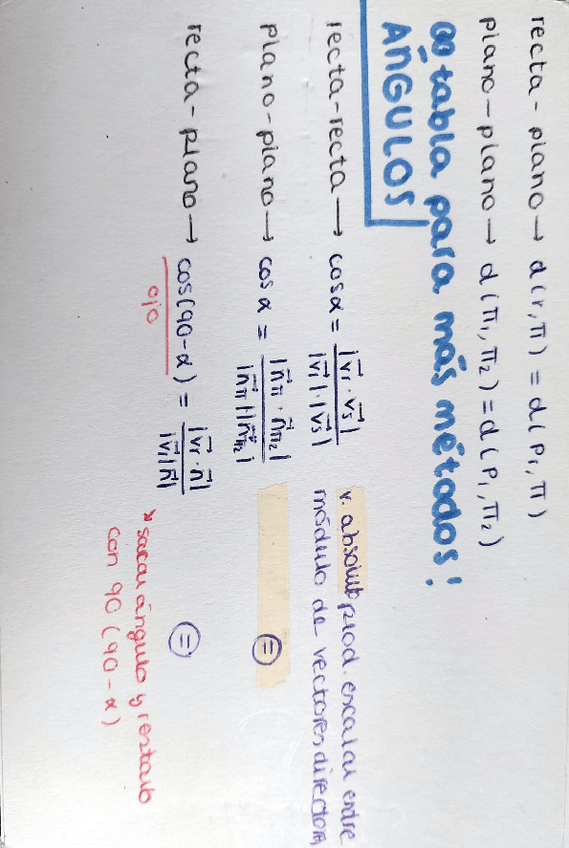 recta - plano → d(r, π) = d(Pr, π)
plano - plano → d(π₁, π₂) = d(P₁, π₂)
∞ tabla para más métodos!
ÁNGULOS
recta-recta → cos α = |v⃗r · v⃗s| / |v⃗r| · |v⃗s| v. absoluto prod. escalar entre
módulo de vectores directores
plano-plano → cos α = |n⃗π · n⃗π₂| / |n⃗π| |n⃗π₂| (=)
recta-plano → cos(90-α) = |v⃗r · n⃗| / |v⃗r| |n⃗| (=)
ojo
* sacar ángulo y restarlo
con 90 (90 - α)